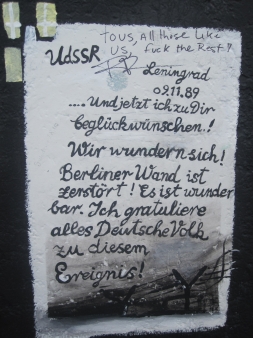 TOUS, All those Like
US, fuck the Rest!!
UdSSR
Leningrad
09.11.89
....Und jetzt ich zu Dir
beglückwünschen.!
Wir wundern sich!
Berliner Wand ist
zerstört! Es ist wunder
bar. Ich gratuliere
alles Deutsche Volk
zu diesem
Ereignis!